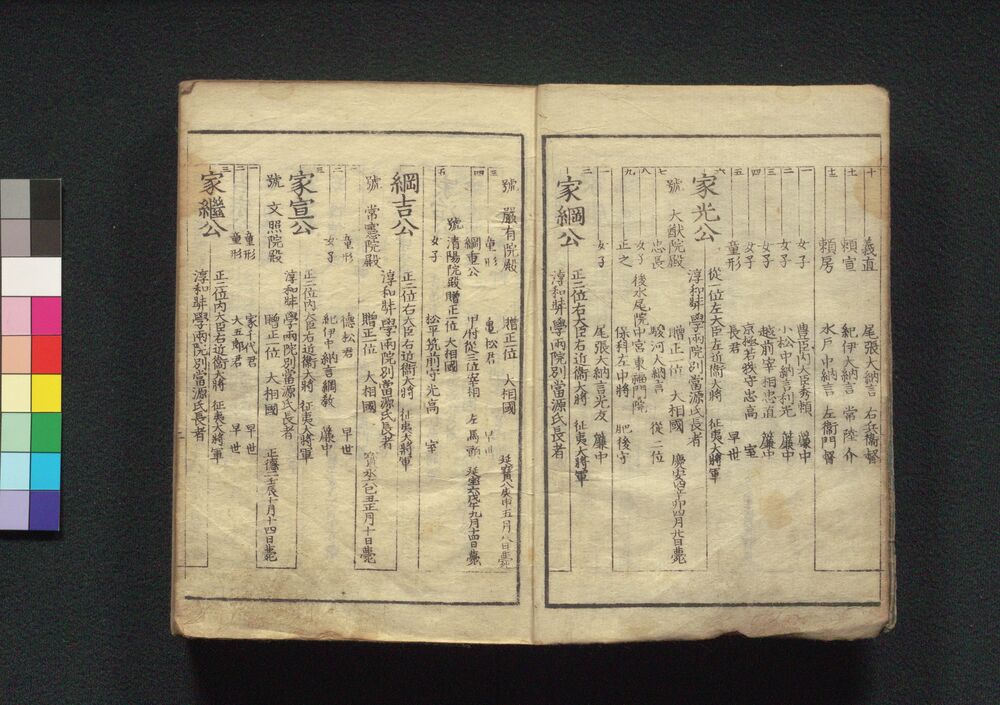 十 義直 尾張大納言 右兵衞督
十一 頼宣 紀伊大納言 常陸介
十二 頼房 水戸中納言 左衞門督
家光公 從一位左大臣左近衞大將 征夷大將軍
淳和弉學兩院別當源氏長者
號 大猷院殿 贈正一位 大相國 慶安四辛卯四月廿日薨
一 女子 豊臣内大臣秀頼 簾中
二 女子 小松中納言利光 簾中
三 女子 越前宰相忠直 簾中
四 女子 京極若狭守忠高 室
五 童形 長君 早世
六
七 忠長 駿河大納言 從二位
八 女子 後水尾院中宮東福門院
九 正之 保科左中將 肥後守
家綱公 正二位右大臣右近衞大將 征夷大將軍
淳和弉學兩院別當源氏長者
一 女子 尾張大納言光友 簾中
二
號 嚴有院殿 贈正一位 大相國 延寳八庚申五月八日薨
三 童形 亀松君 早世
四 綱重公 甲府從三位宰相 左馬頭 延宝六戊午九月十四日薨
號 清陽院殿贈正一位 大相國
五 女子 松平筑前守光高 室
綱吉公 正二位右大臣右近衞大將 征夷大將軍
淳和弉學兩院別當源氏長者
號 常憲院殿 贈正一位 大相國 寳永六己丑正月十日薨
一 童形 徳松君 早世
二 女子 紀伊中納言綱教 簾中
三
家宣公 正二位内大臣右近衞大將 征夷大將軍
淳和弉學兩院別當源氏長者
號 文照院殿 贈正一位 大相國 正徳二壬辰十月十四日薨
一 童形 家千代君 早世
二 童形 大五郎君 早世
三
家繼公 正二位内大臣右近衞大將 征夷大將軍
淳和弉學兩院別當源氏長者